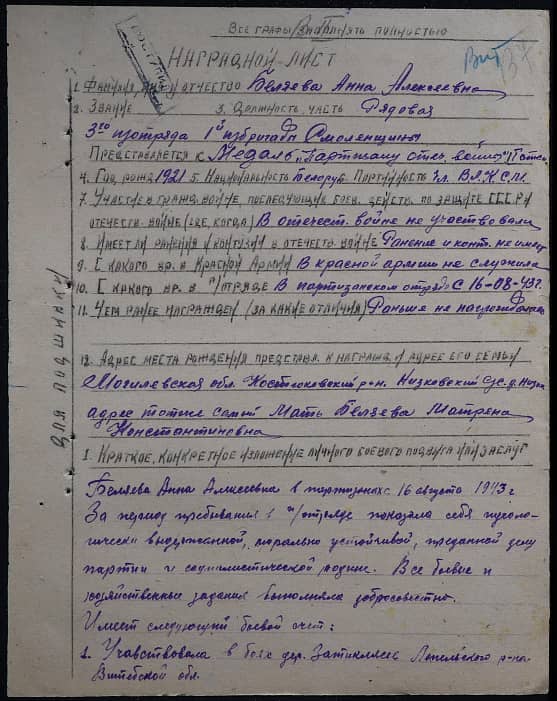 Все графы заполнять полностью
Наградной лист
1. Фамилия, имя и отчество Беляева Анна Алексеевна
2. Звание 3. Должность, часть Рядовая
3го п/отряда 1й п/бригады Смоленщины
Представляется к Медаль „Партизану отеч. войны"
4. Год рожд. 1921 5. Национальность Белорус. Партийность чл. ВЛКСМ
7. Участие в гражд. войне, последующие боев. действ. по защите СССР и
отечеств. войне (где, когда) В отечест. войне не участвовали
8. Имеет ли ранения и контузии в отечеств. войне Ранение и конт. не имеет
9. С какого вр. в Красной Армии В красной армии не служила
10. С какого вр. в п/отряде В партизанском отряде с 16-08-43г.
11. Чем ранее награжден (за какие отличия) Раньше не награждалась
12. Адрес места рождения представл. к награжд. и адрес его семьи
Могилевская обл. Костюковский р-он. Низковский с/с. д.
адрес тотже самый Мать Беляева Матрена
Константиновна
1. Краткое, конкретное изложение личного боевого подвига или заслуг
Беляева Анна Алексеевна в партизанах с 16 августа 1943 г
За период пребывания в п/отряде показала себя идеоло-
гически выдержанной, морально устойчивой, преданной делу
партии и социалистической родине. Все боевые и
хозяйственные задания выполняла добросовестно.
Имеет следующий боевой счет:
1. Учавствовала в боях дер. Лепельского р-на
Витебской обл.
Для подшивки